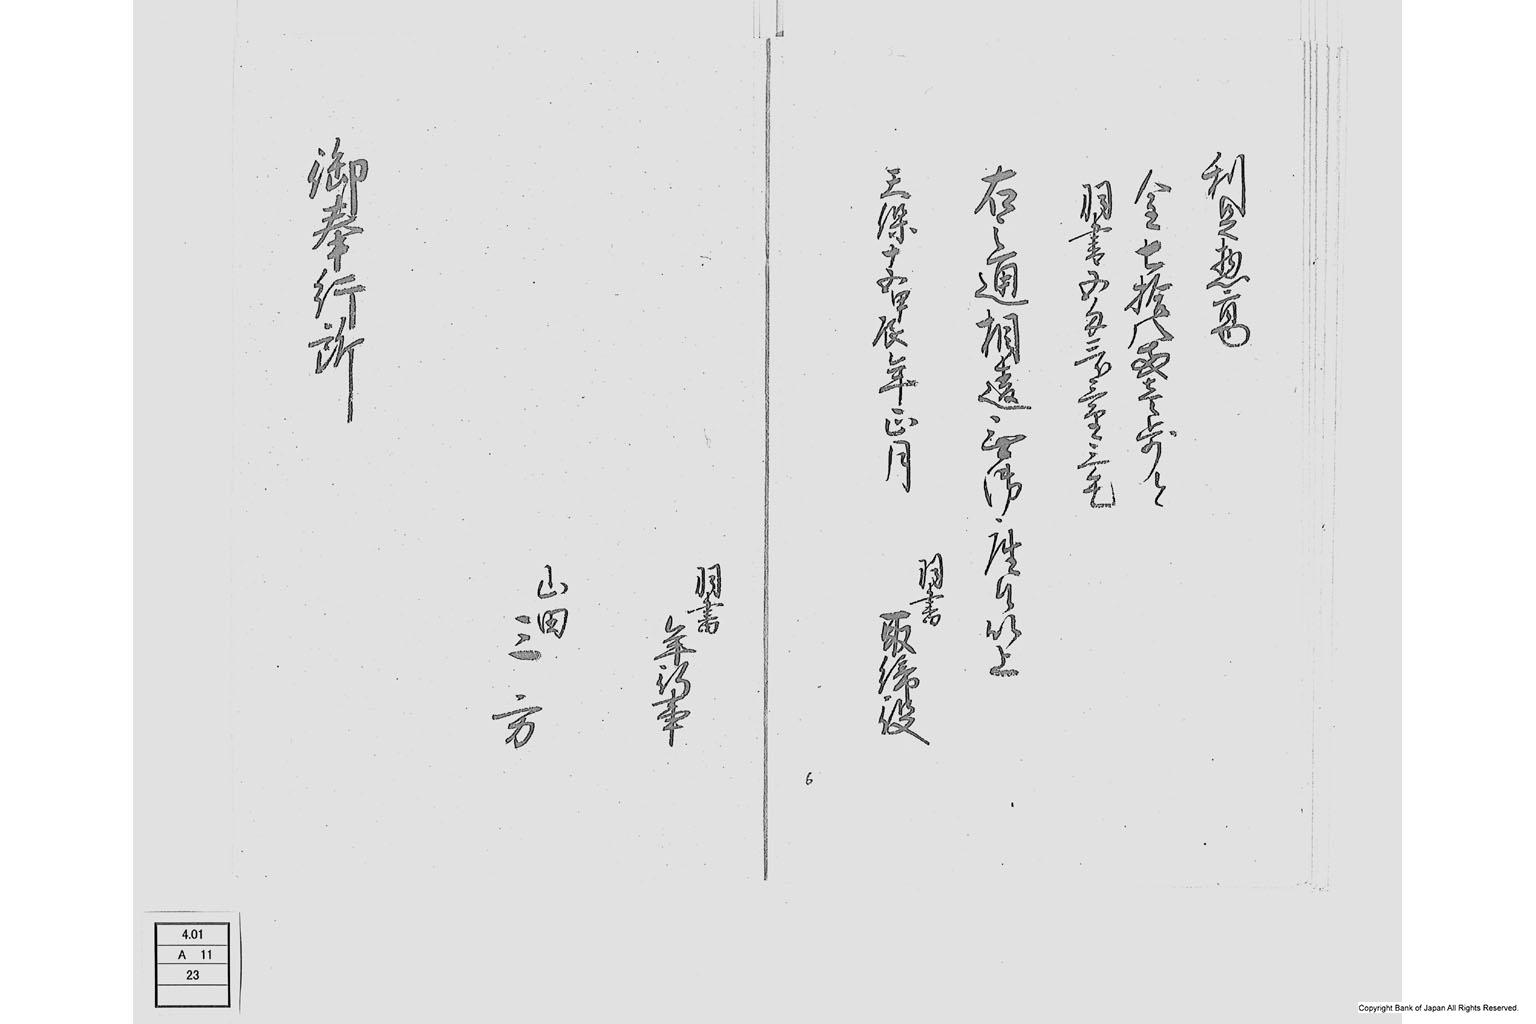 利足惣高
金七拾八両壱歩ト
羽書五匁三分三厘三毛
右之通相違無御座候以上
天保十五甲辰年正月
羽書
取締役
羽書
年行事
山田
三方
御奉行所
6
4.01
A 11
23
Copyright Bank of Japan All Rights Reserved.